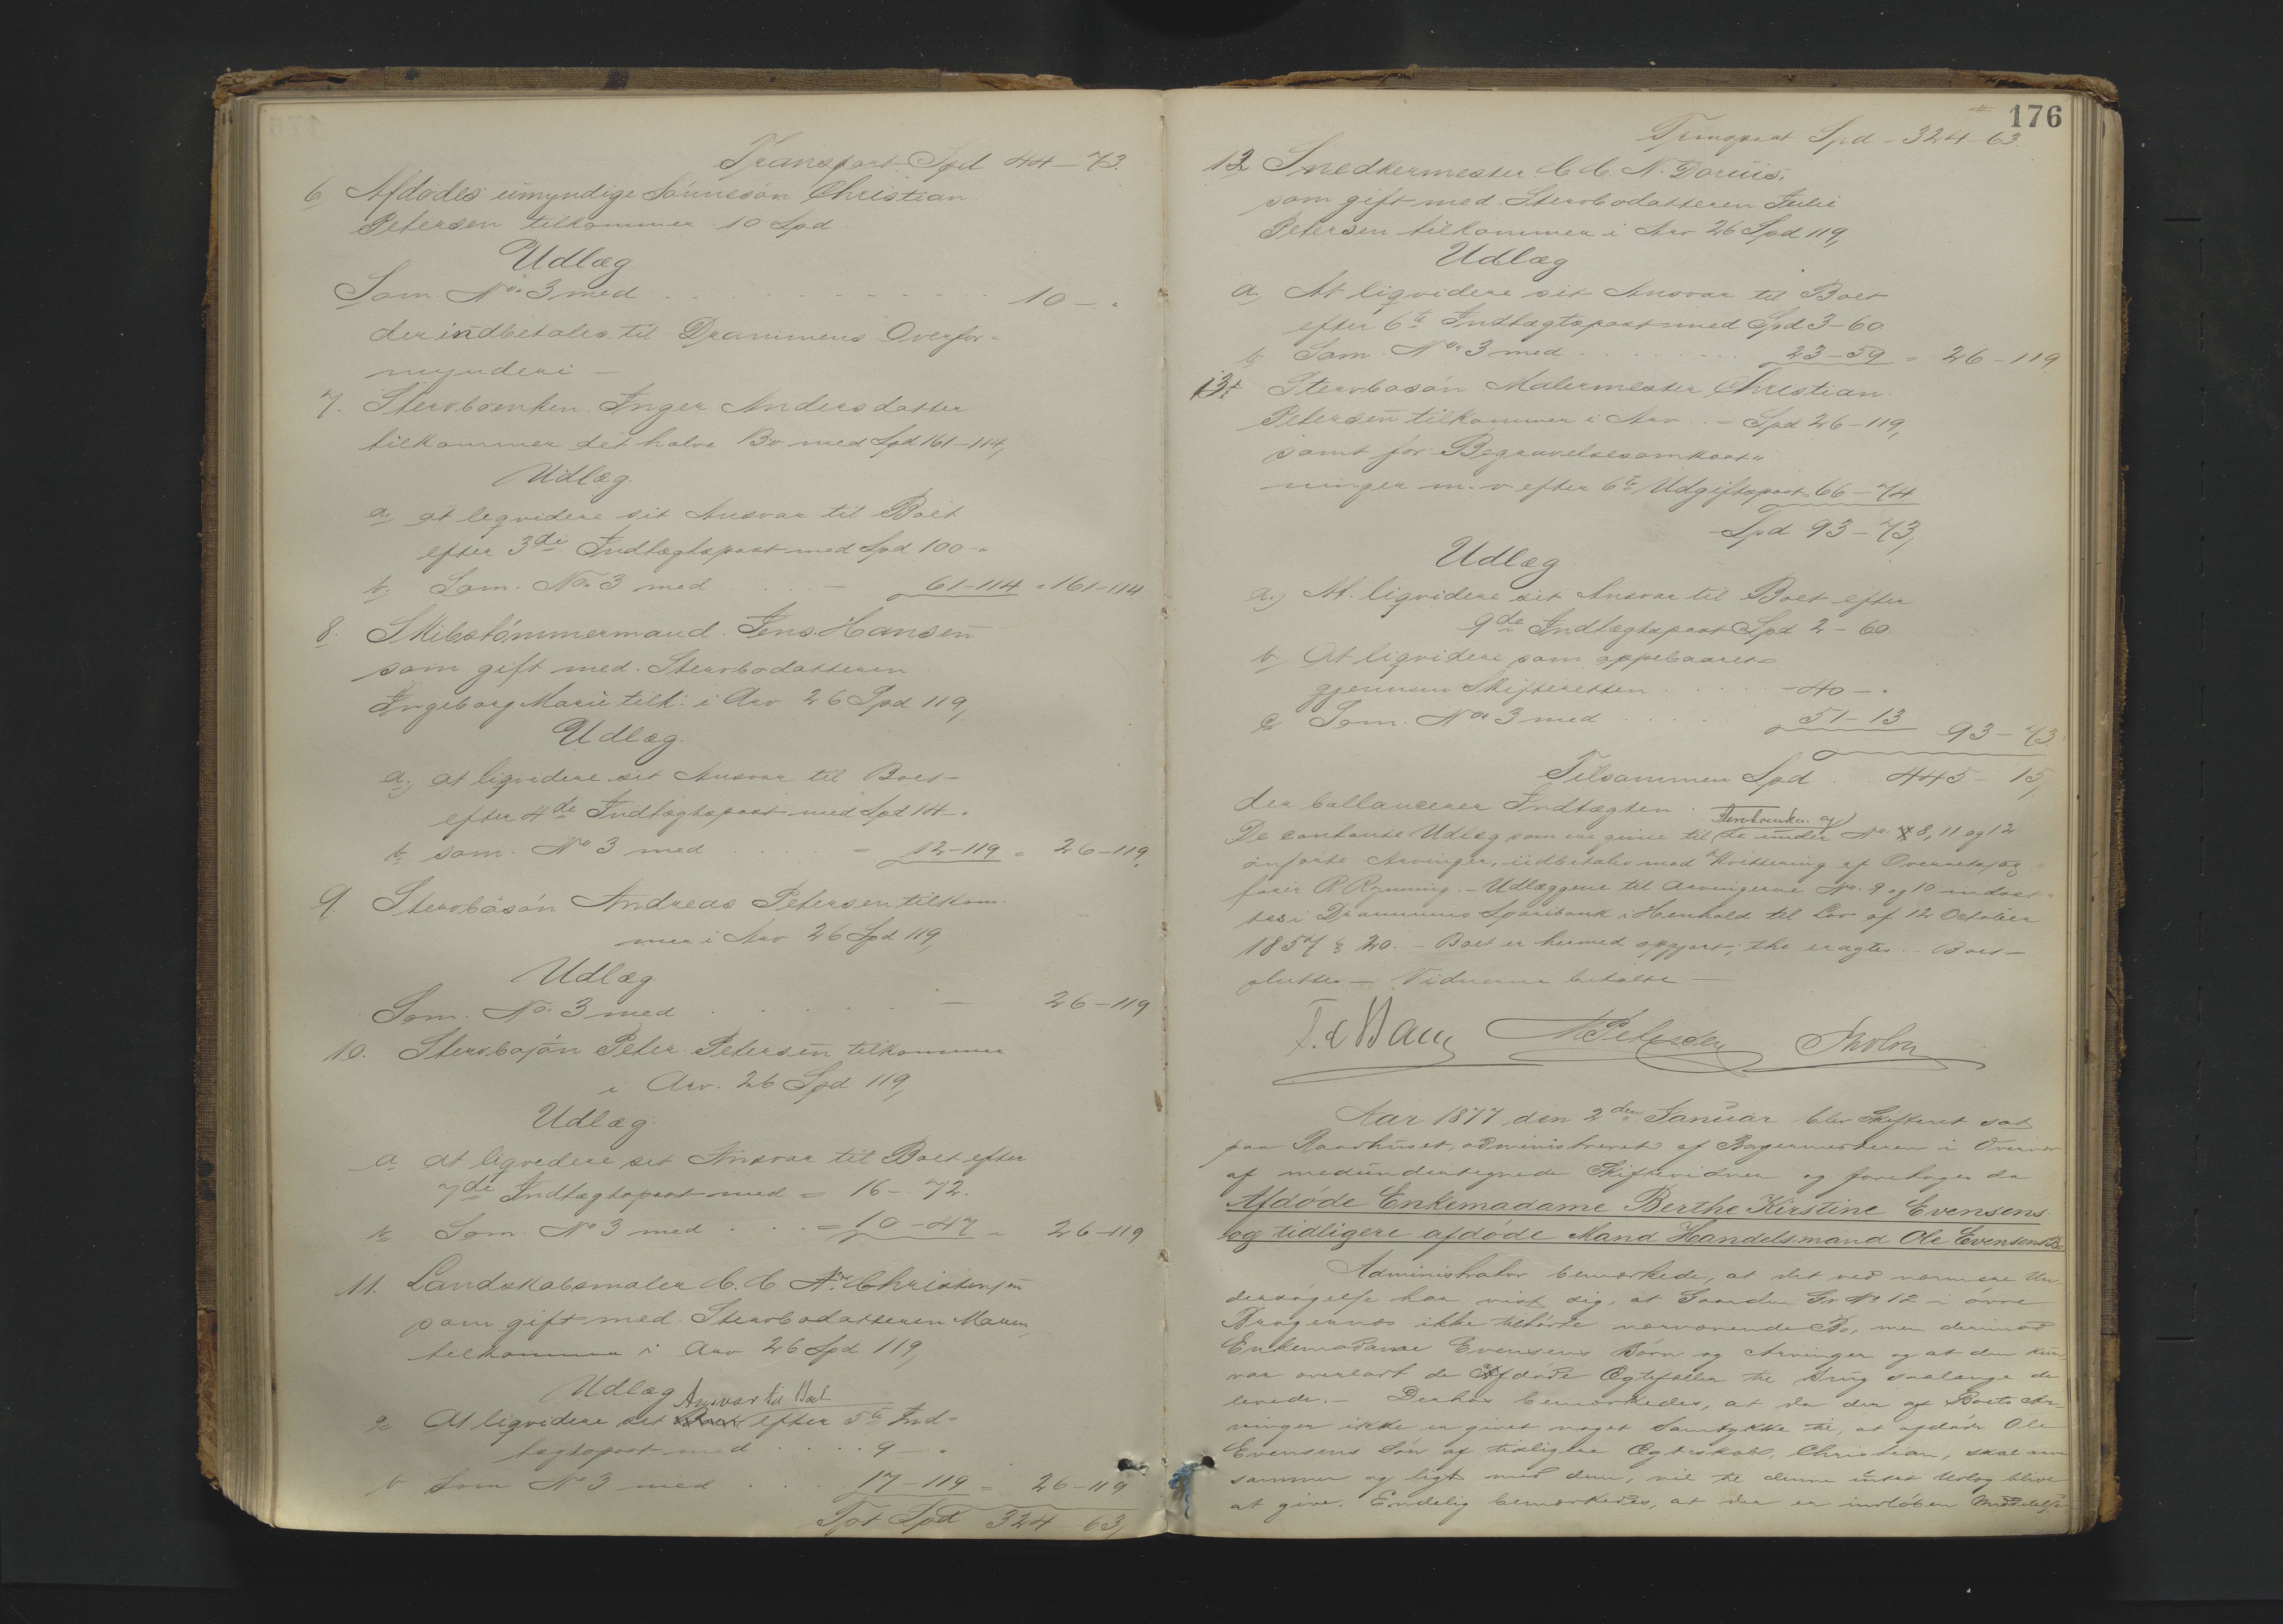 Transport Spd 44-73.
6 Afdødes umyndige Sønnesøn Christian
Petersen tilkommer 10 Spd
Udlæg
Som No 3 med 10 - "
der indbetales til Drammens Overfor-
mynderi -
7. Stervboenken Inger Andersdatter
tilkommer det halve Bo med Spd 161-114,
Udlæg.
a at liqvidere sit Ansvar til Boet
efter 3die Indtægtspost med Spd 100 - "
b, Som No 3 med 61-114 = 161-114
8. Skibstømmermand Jens Hansen
som gift med Stervbodatteren
Ingeborg Marie tilk: i Arv 26 Spd 119,
Udlæg.
a, at liqvidere sit Ansvar til Boet
efter 4de Indtægtspost med Spd 14 - "
b, som No 3 med 12-119 = 26-119,
9. Stervbosøn Andreas Petersen tilkom-
mer i Arv 26 Spd 119,
Udlæg
Som No 3 med 26-119
10. Stervbosøn Peter Petersen tilkommer
i Arv. 26 Spd 119,
Udlæg.
a at liqvidere sit Ansvar til Boet efter
7de Indtægtspost med = 16-72.
b Som No 3 med = 10-47 = 26-119
11. Landskabsmaler C. C. Christensen
som gift med Stervbodatteren Maren,
tilkommer i Arv 26 Spd 119,
Udlæg
Ansvar til Boet
a At liqvidere sit efter 5te Ind-
tægtspost med 9 - "
b som No 3 med 17-119 = 26-119
Tpt Spd 324 63,
176
Transport Spd - 324-63.
12 Snedkermester C. C. N. Dorüis,
som gift med Stervbodatteren Julie
Petersen tilkommer i Arv 26 Spd 119,
Udlæg
a, At liqvidere sit Ansvar til Boet
efter 6te Indtægtspost med Spd 3-60
b, Som No 3 med 23-59 = 26-119
13, Stervbosøn Malermester Christian
Petersen tilkommer i Arv - Spd 26-119,
samt for Begravelsesomkost-
ninger m. v. efter 6te Udgiftspost 66-74
Spd 93-73,
Udlæg
a, At liqvidere sit Ansvar til Boet efter
9de Indtægtspost Spd 2-60.
b, At liqvidere som oppebaaret
gjennem Skifteretten - 40 - "
c, Som No 3 med 51-13 93-73.
Tilsammen Spd 445-15,
der ballancerer Indtægten.
Stervboenken og
De contante Udlæg som er givne til de under No. 8, 11 og 12
anførte Arvinger, udbetales mod Kvittering af Overretssag-
fører R Rynning. - Udlæggene til Arvingerne No. 9 og 10 indsæt-
tes i Drammens Sparebank i Henhold til Lov af 12 October
1857 § 20. - Boet er hermed opgjort; Boet
sluttes - Vidnerne betalte -
Petersen Holm
Aar 1877 den 2den Januar blev Skifteret sat
paa Raadhuset, administreret af Borgermesteren i Overvær
af medundertegnede Skiftevidner og foretoges da
Afdøde Enkemadame Berthe Kirstine Evensens
og tidligere afdøde Mand Handelsmand Ole Evensens Bo
Administrator bemærkede, at det ved nærmere Un-
dersøgelse har vist sig, at Gaarden Gr No 12 i øvre
Bragernes ikke tilhørte nærværende Bo, men derimod
Enkemadame Evensens Børn og Arvinger og at den kun
var overladt de afdøde Ægtefæller til Brug saalænge de
levede. - Derhos bemærkedes, at da der af Boets Ar-
vinger ikke er givet noget Samtykke til, at afdøde Ole
Evensens Søn af tidligere Ægteskab, Christian, skal arve
sammen og ligt med dem, vil til denne intet Udlæg blive
at give. Endelig bemærkedes, at der er indløben Meddelelse